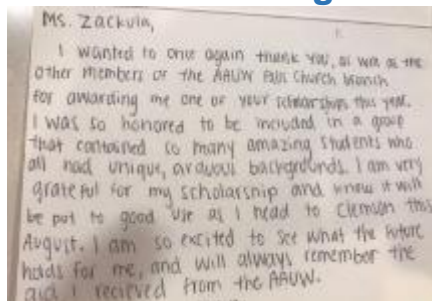 Ms. Zackula,
I wanted to once again thank you, as well as the
other members of the AAUW Falls Church branch
for awarding me one of your scholarships this year.
I was so honored to be included in a group
that contained so many amazing students who
all had unique, arduous backgrounds. I am very
grateful for my scholarship and know it will
be put to good use as I head to Clemson this
August. I am so excited to see what the future
holds for me, and will always remember the
aid I recieved from the AAUW.